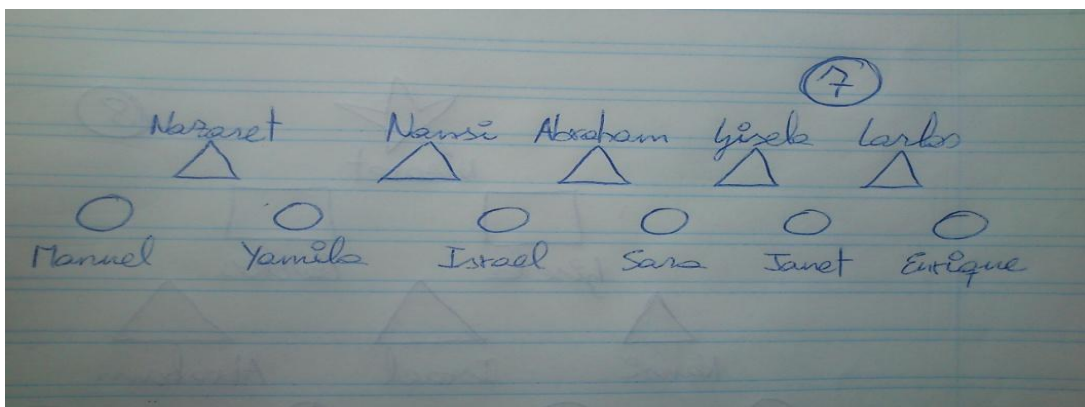 7
Nazaret Namsi Abraham Gisela Carlos
Manuel Yamila Israel Sara Janet Enrique